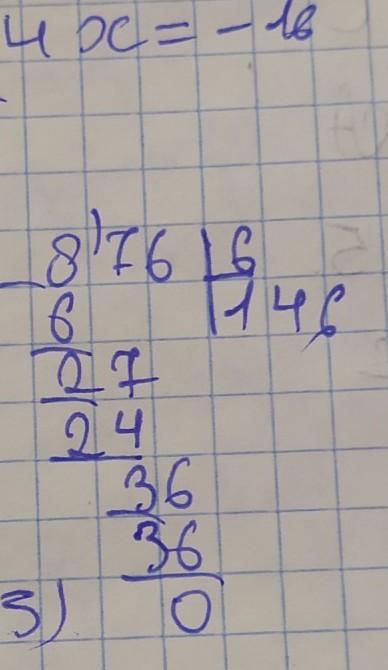 4x = -16
8'76 6
6 146
27
24
36
36
3) 0